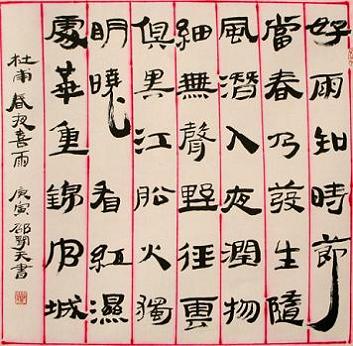 好雨知時節
當春乃發生隨
風潛入夜潤物
細無聲野徑雲
俱黑江船火獨
明曉看紅濕
處華重錦官城
杜甫 春夜喜雨 庚寅 邵天書